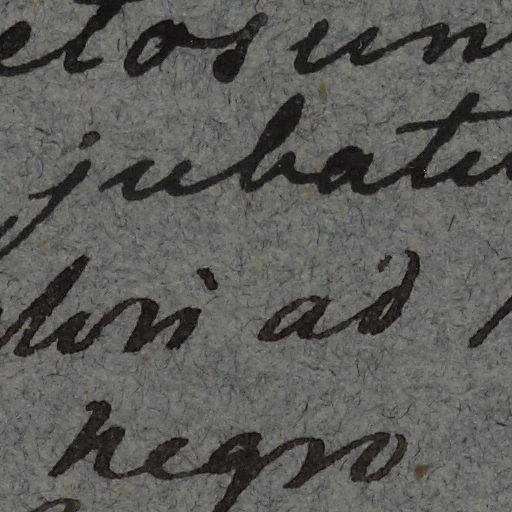 etosum
jubatu
lori ad
negro